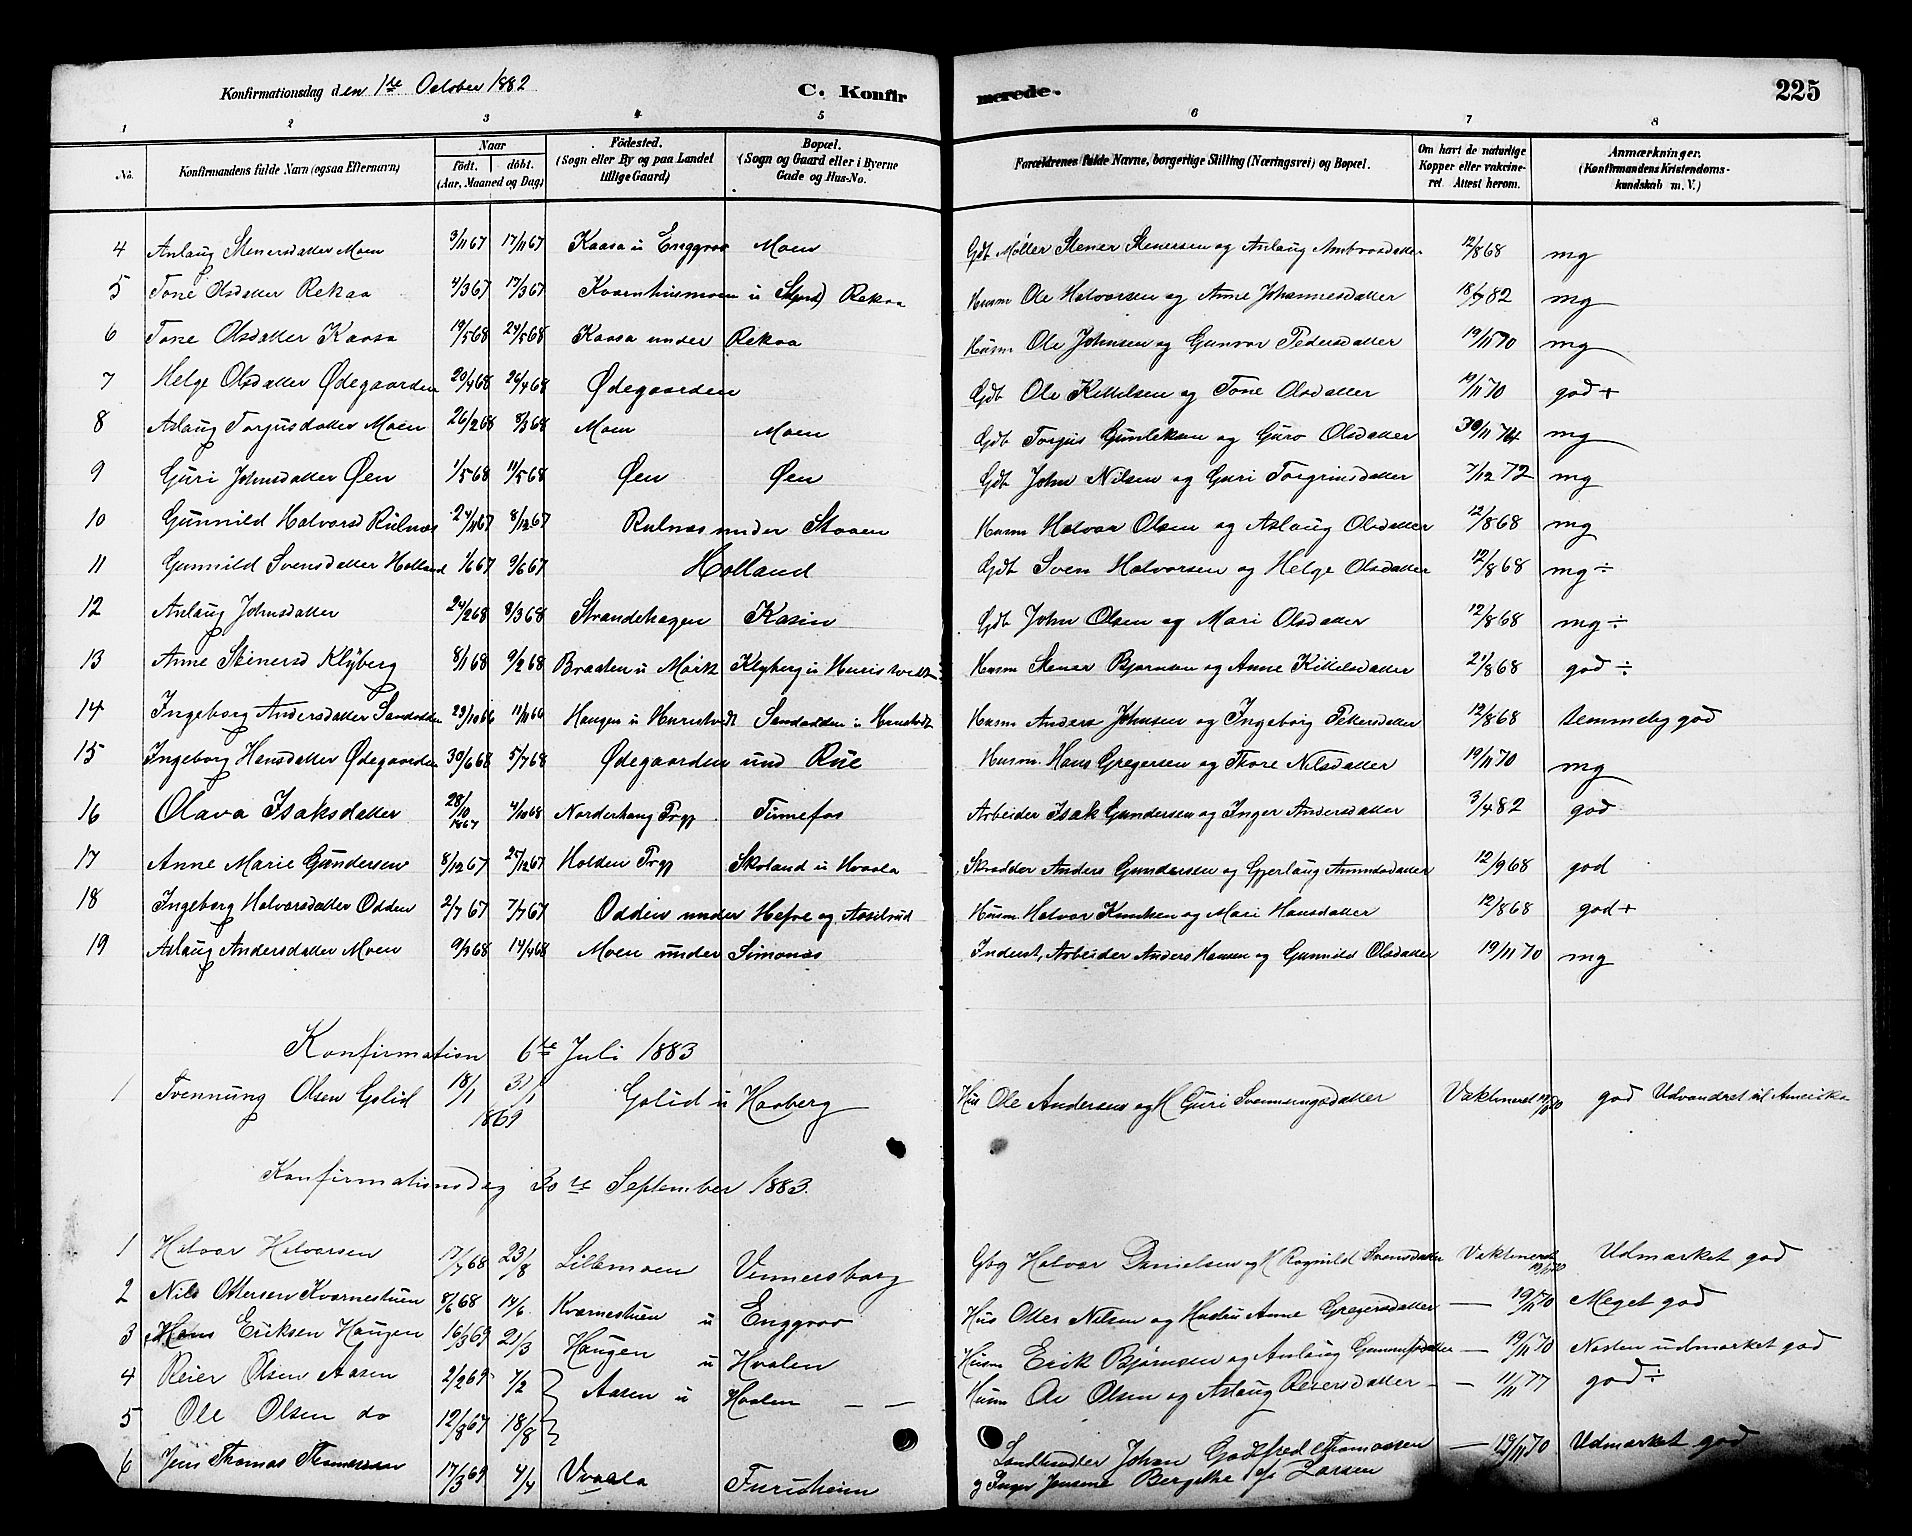 Konfirmationsdag den 1ste October 1882 C. Konfirmerede. 225
1 2 3 4 5 6 7 8
No. Konfirmandens fulde Navn (ogsaa Efternavn) Naar födt. döbt. (Aar, Maaned og Dag) Födested. (Sogn eller By og paa Landet tillige Gaard) Bopæl. (Sogn og Gaard eller i Byerne Gade og Hus-No. Forældrenes fulde Navne, borgerlige Stilling (Næringsvei) og Bopæl. Om havt de naturlige Kopper eller vakcineret. Attest herom. Anmærkninger. (Konfirmandens Kristendomskundskab m. V.)
4 Aslaug Stenersdatter Moen 3/11 67 17/11 67 Kaasa u Enggrav Moen Gdt Møller Stener Stenersen og Aslaug 12/8 68 mg
5 Tone Olsdatter Rekaa 4/3 67 17/3 67 Kvernhusmoen u Rekaa Husm Ole Halvorsen og Anne Johannesdatter 18/7 82 mg
6 Tone Olsdatter Kaasa 19/5 68 24/5 68 Kaasa under Rekaa Husm Ole Johnsen og Gunvor Pedersdatter 19/11 70 mg
7 Helge Olsdatter Ødegaarden 20/4 68 26/4 68 Ødegaarden Gdt Ole Kittelsen og Tone Olsdatter 19/11 70 god +
8 Aslaug Torjusdatter Moen 26/2 68 8/3 68 Moen Moen Gdt Torjus Gunleksen og Guro Olsdatter 30/11 74 mg
9 Guri Johnsdatter Øen 1/5 68 11/5 68 Øen Øen Gdt John Nilsen og Guri Torgrimsdatter 7/12 72 mg
10 Gunnild Halvorsd Rulnæs 24/11 67 8/12 67 Rulnæs under Staaen Husm Halvor Olsen og Aslaug Olsdatter 12/8 68 mg
11 Gunnild Svensdatter Holland 1/6 67 9/6 67 Holland Gdt Sven Halvorsen og Helge Olsdatter 12/8 68 mg ÷
12 Aslaug Johnsdatter 24/2 68 8/3 68 Strandehagen Kasin Gdt John Olsen og Mari Olsdatter 12/8 68 mg ÷
13 Anne Stenersd Klyberg 8/1 68 9/2 68 Braaten u Mørk Klyberg u Huristvedt Husm Stener Bjørnsen og Anne Kittelsdatter 21/8 68 god ÷
14 Ingeborg Andersdatter Sandodden 29/10 66 11/11 66 Haugen u Huristvedt Sandodden u Huristvedt Husm Anders Johnsen og Ingeborg Pettersdatter 12/8 68 temmelig god
15 Ingeborg Hansdatter Ødegaarden 30/6 68 5/7 68 Ødegaarden und Rue Husm. Hans Gregersen og Thore Nilsdatter 19/11 70 mg
16 Olava Isaksdatter 28/10 1867 4/10 68 Norderhaug Prgj Tinnefos Arbeider Isak Gundersen og Inger Andersdatter 3/4 82 god
17 Anne Marie Gundersen 8/12 67 25/12 67 Holden Prgj Skoland u Hvaala Skrædder Anders Gundersen og Gjerlaug Amundsdatter 12/9 68 god
18 Ingeborg Halvorsdatter Odden 2/7 67 7/7 67 Odden under Hefre og Aaselrud Husm Halvor Knudsen og Mari Hansdatter 12/8 68 god +
19 Aslaug Andersdatter Moen 9/3 68 14/4 68 Moen under Simones Inderst, Arbeider Anders Hansen og Gunnild Olsdatter 19/11 70 mg
Konfirmation 6te Juli 1883
1 Svennung Olsen Golid 18/1 31/1 1869 Golid u Haaberg Hus Ole Andersen og H Guri Svennungsdatter Vaktineret 19/11 70 god Udvandret til Amerika
Konfirmationsdag 30te September 1883.
1 Halvor Halvorsen 17/7 68 23/8 Lillemoen Vennersborg Gbg Halvor Danielsen og H Ragnild Svensdatter Vaktineret 19/11 70 Udmærket god
2 Nils Ottersen Kvernestuen 8/6 68 14/6. Kvernestuen u Enggrav Hus Otter Nilsen og Hustru Anne Gregersdatter — 19/11 70 Meget god
3 Hans Eriksen Haugen 16/3 69 21/3 Haugen u Hvalen Husm Erik Bjørnsen og Aslaug Gunnulfsdatter — 19/11 70 Næsten udmærket god
4 Reier Olsen Aasen 2/2 69 7/2 Aasen u Hvalen — — Husm Olsen og Aslaug Reiersdatter — — 11/11 77 god ÷
5 Ole Olsen do 12/8 67 18/8
6 Jens Thomas Thomassen 17/3 69 4/4 Vvaala Furuheim Landhandler Johan Godtfred Thomassen — 19/11 70 Udmærket god
og Inger Jensine Bergitte f. Larsen